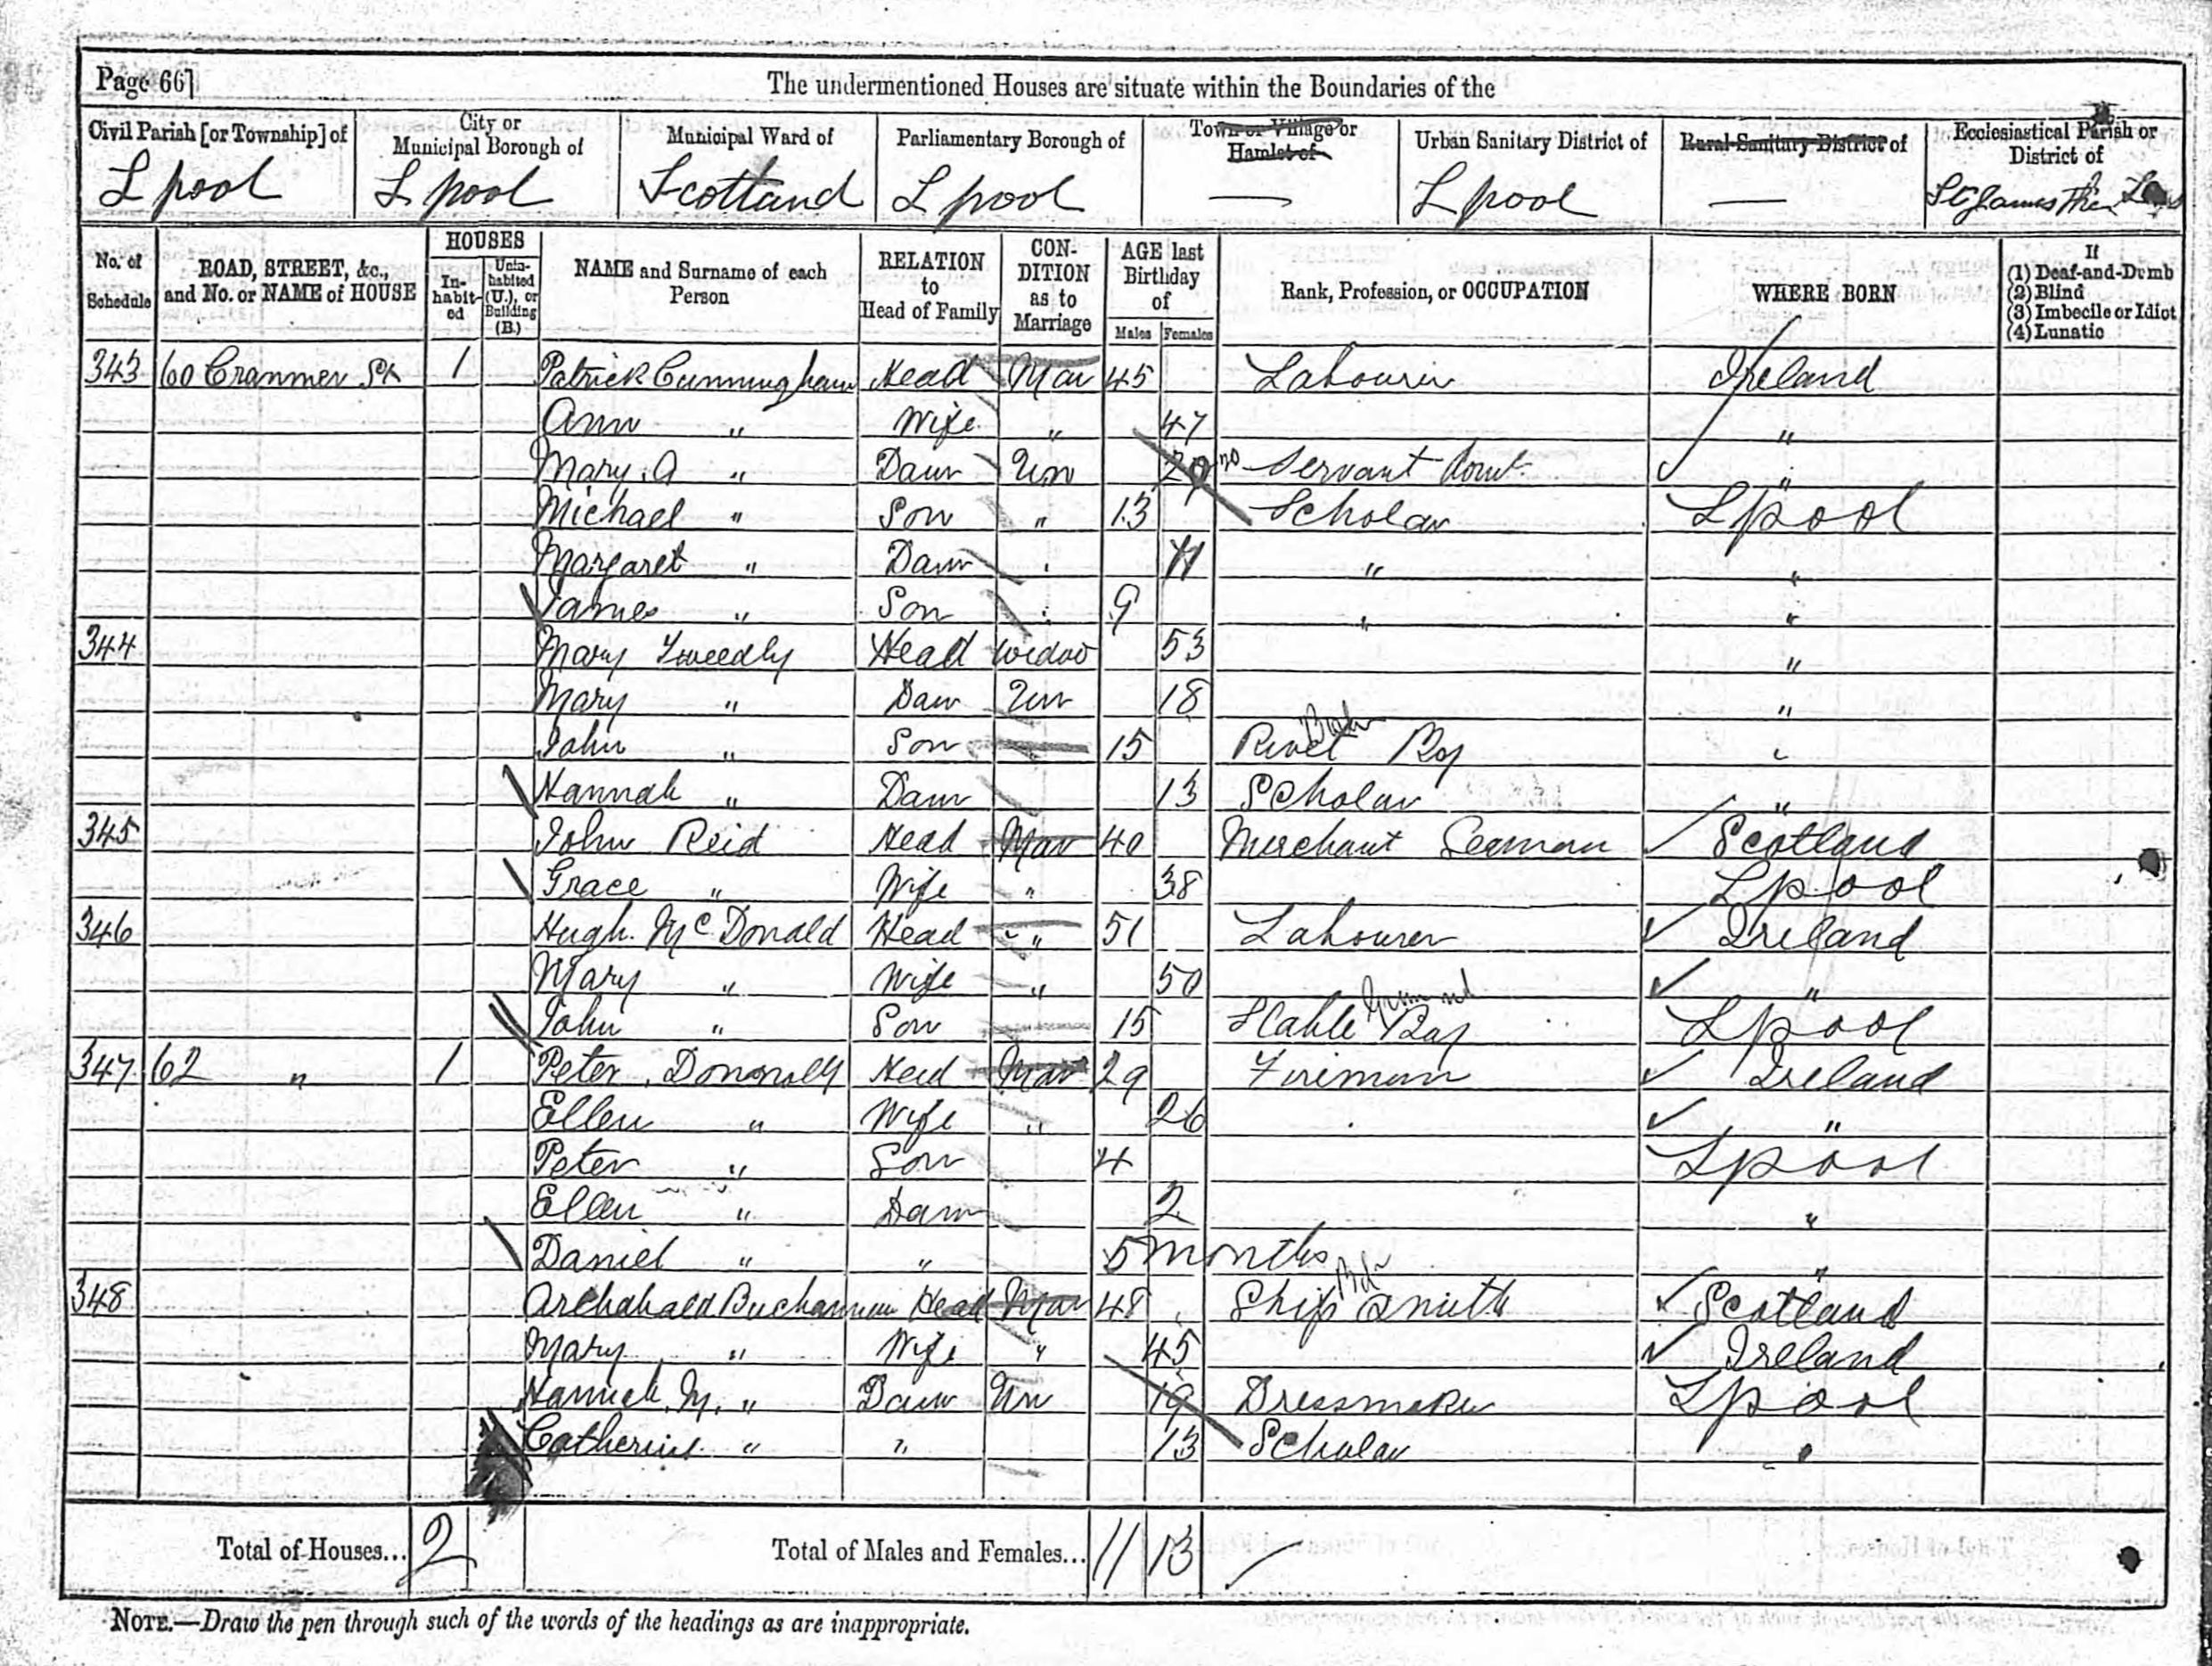 Page 66]
The undermentioned Houses are situate within the Boundaries of the
Civil Parish [or Township] of
City or Municipal Borough of
Municipal Ward of
Parliamentary Borough of
Town or Village or Hamlet of
Urban Sanitary District of
Rural Sanitary District of
Ecclesiastical Parish or District of
Lpool Lpool Scotland Lpool — Lpool — St James The Less
No. of Schedule
ROAD, STREET, &c., and No. or NAME of HOUSE
HOUSES
In-habit-ed
Unin-habited (U.), or Building (B.)
NAME and Surname of each Person
RELATION to Head of Family
CON-DITION as to Marriage
AGE last Birthday of
Males Females
Rank, Profession, or OCCUPATION
WHERE BORN
If
(1) Deaf-and-Dumb
(2) Blind
(3) Imbecile or Idiot
(4) Lunatic
343 60 Cranmer St 1 Patrick Cunningham Head Mar 45 Labourer Ireland
Ann " Wife " 47 "
Mary. A " Daur Un Servant Dom "
Michael " Son " 13 Scholar Lpool
Margaret " Daur " 11 " "
James " Son " 9 " "
344 Mary Tweedly Head Widow 53 "
Mary " Daur Un 18 "
John " Son 15 Rivet Boy "
Hannah " Daur 13 Scholar "
345 John Reid Head Mar 40 Merchant Seaman Scotland
Grace " Wife " 38 Lpool
346 Hugh. McDonald Head " 51 Labourer Ireland
Mary " Wife " 50 "
John " Son 15 Stable Boy Lpool
347 62 " 1 Peter Donnolly Head Mar 29 Fireman Ireland
Ellen " Wife " 26 "
Peter " Son 4 Lpool
Ellen " Daur 2 "
Daniel " " 5 months "
348 Archabald Buchannan Head Mar 48 Ship Smith Scotland
Mary " Wife " 45 Ireland
Hannah. M. " Daur Un 19 Dressmaker Lpool
Catherine " " 13 Scholar "
Total of Houses... 2 Total of Males and Females... 11 13
NOTE.—Draw the pen through such of the words of the headings as are inappropriate.